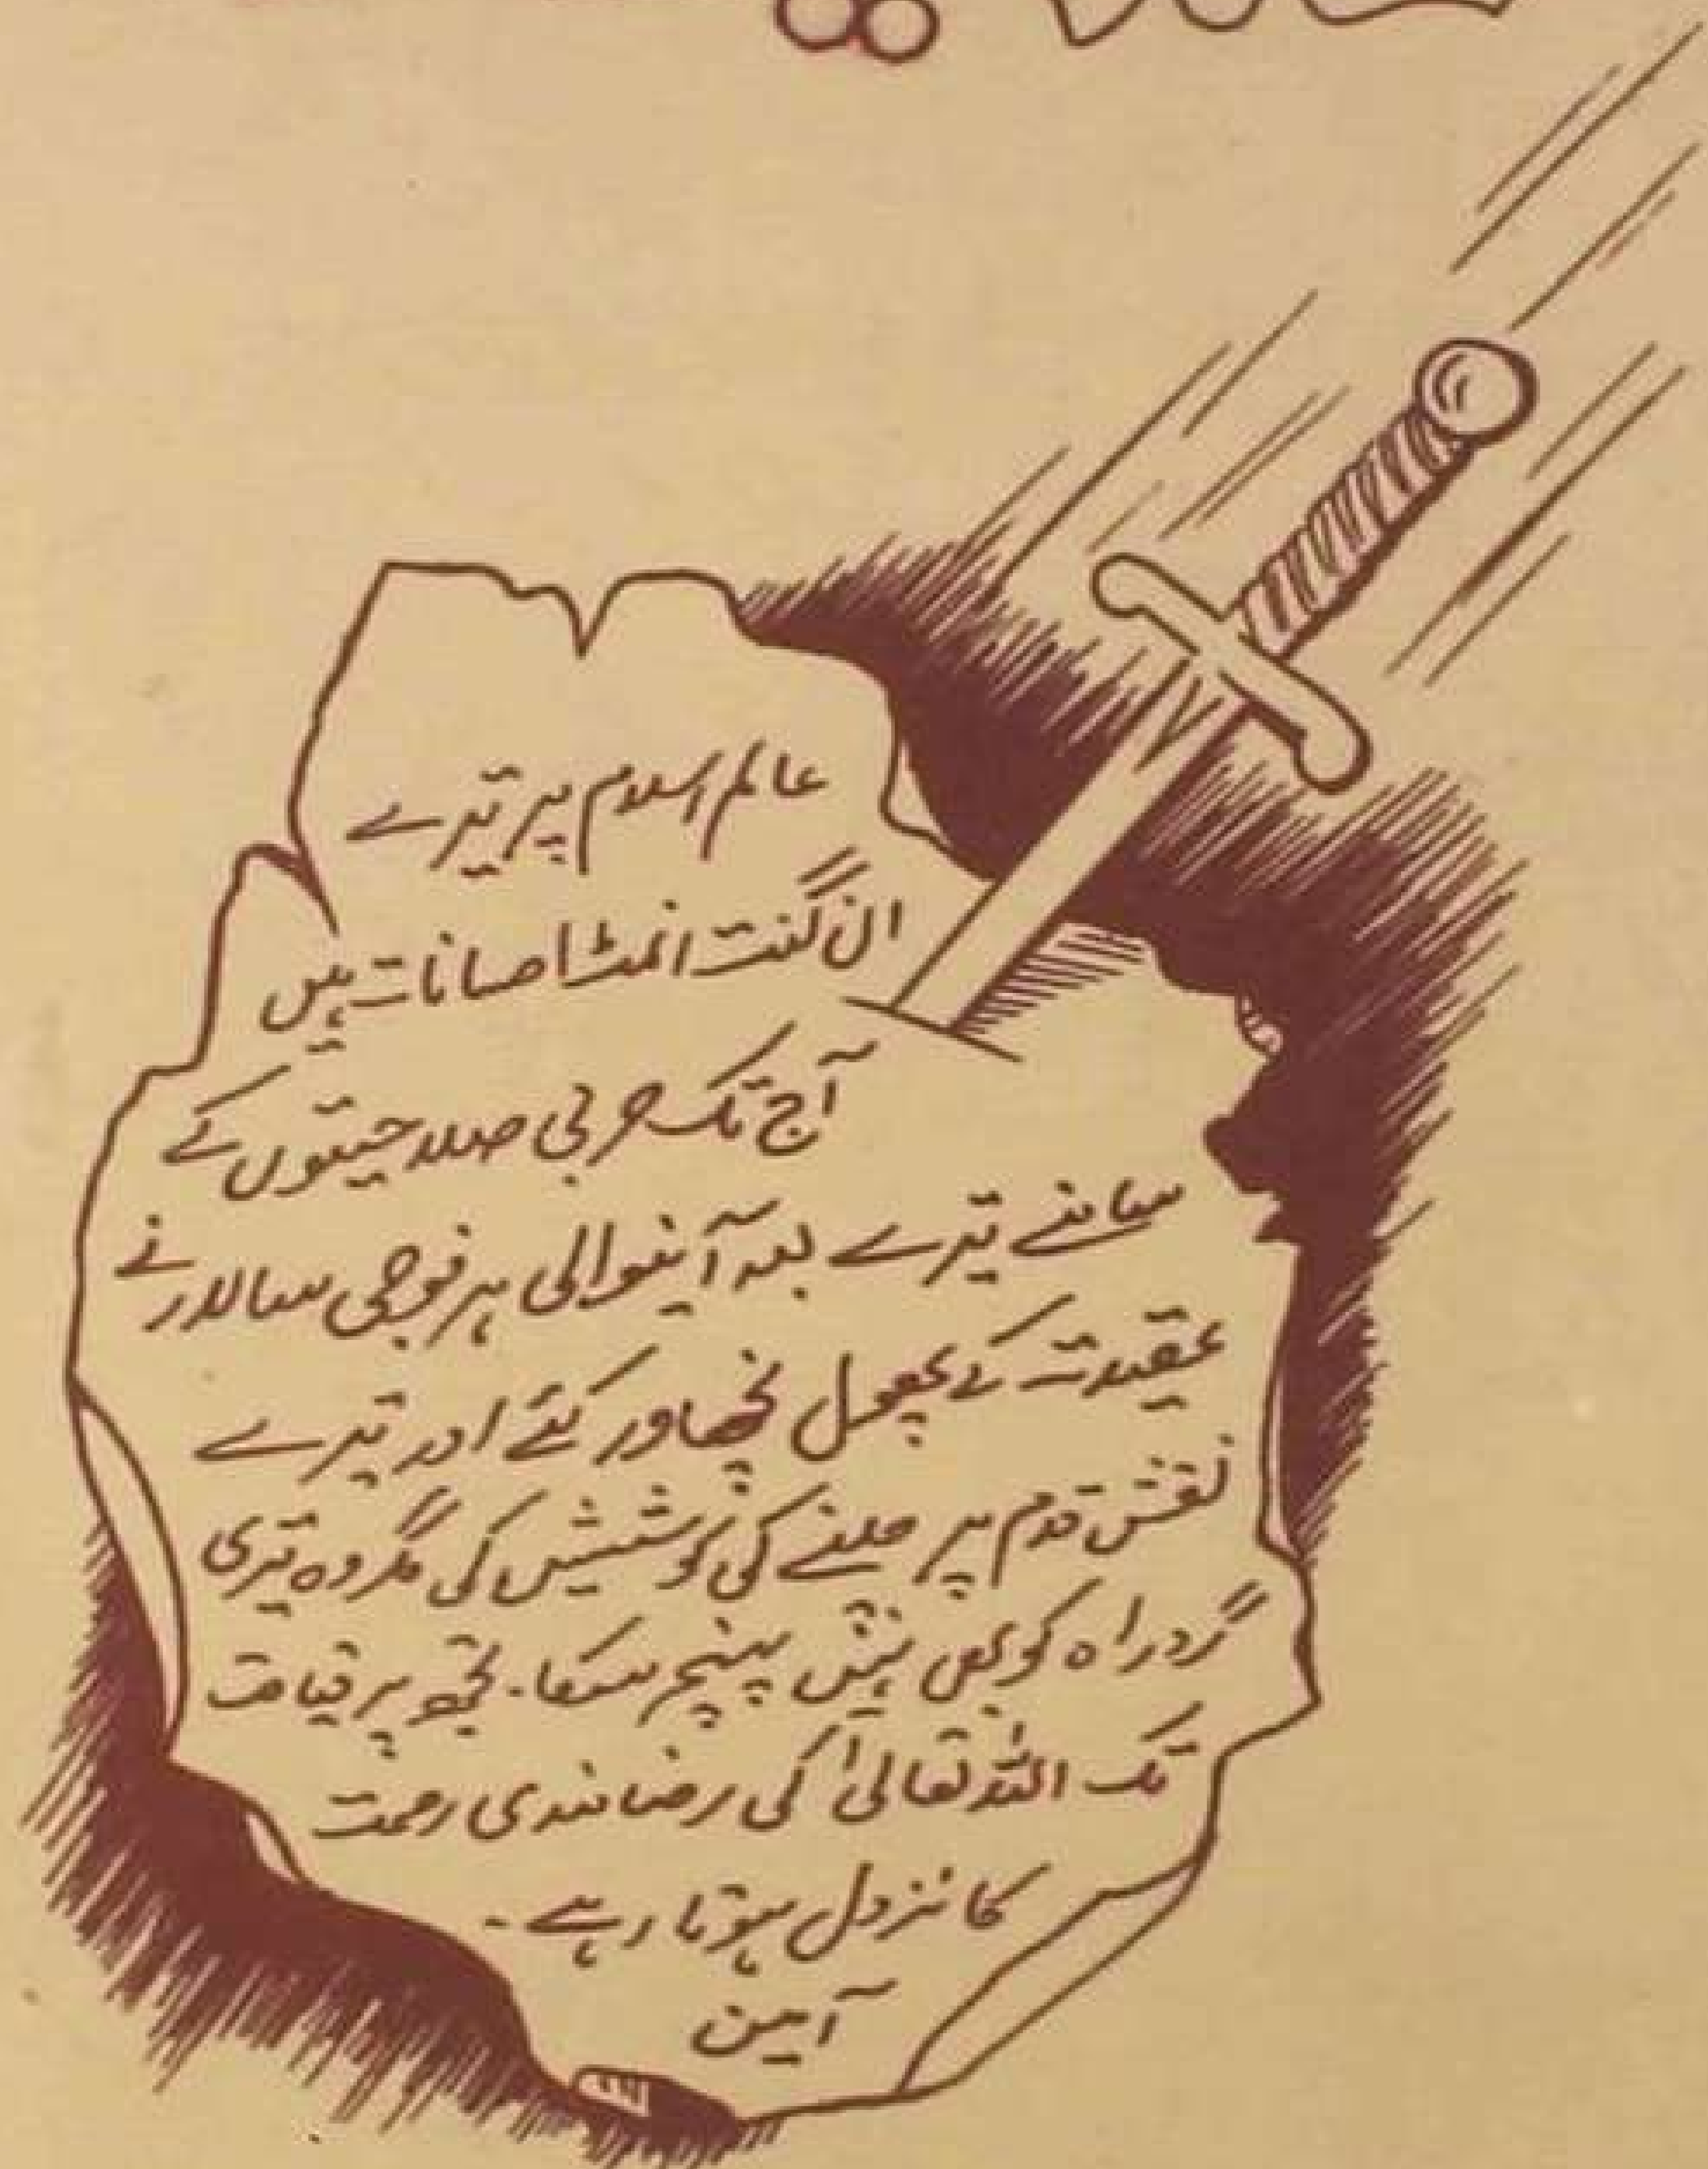 عالم اسلام پر تیرے
ان گنت انمٹ احسانات ہیں
آج تک حربی صلاحیتوں کے
سامنے تیرے بعد آینوالی ہر فوجی سالار نے
عقیدت کے پھول نچھاور کئے اور تیرے
نقش قدم پر چلنے کی کوشیش کی مگر وہ تیری
گردراہ کو بھی نہیں پہنچ سکا۔ تجھ پر قیامت
تک اللہ تعالیٰ کی رضا مندی رحمت
کا نزول ہوتا رہے۔
آمین